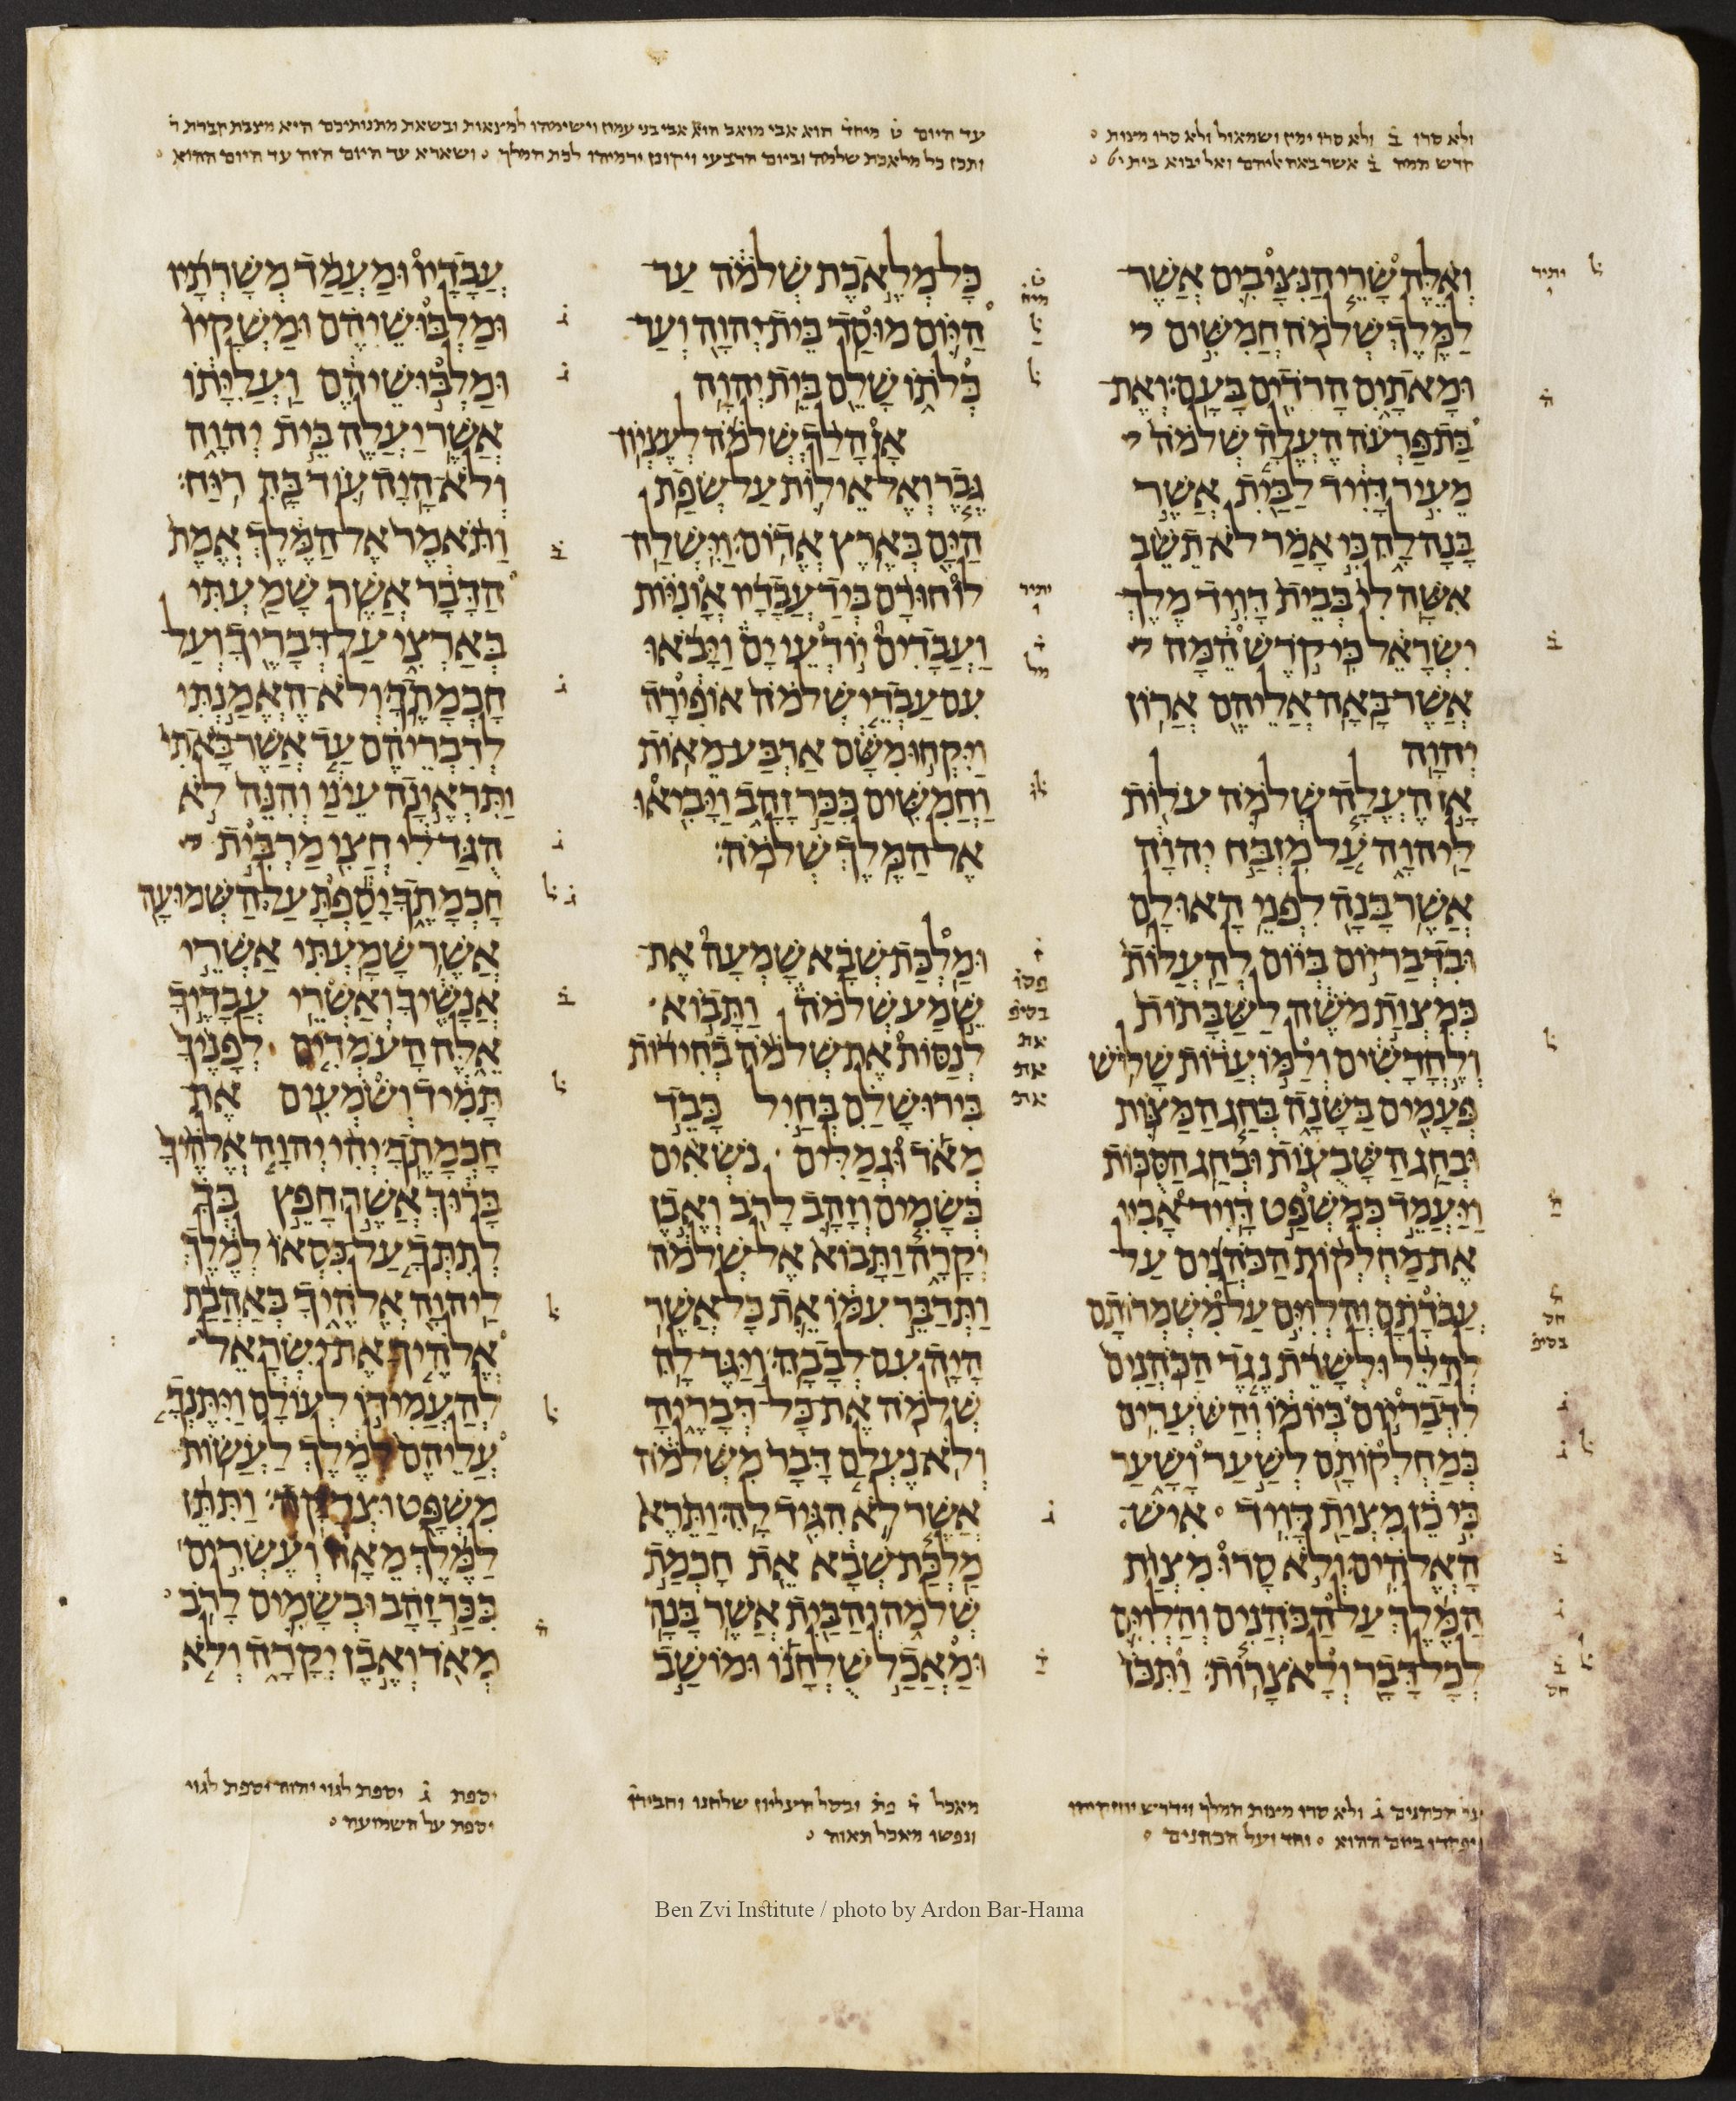 ולא סרו ב̇ ולא סרו ימין ושמאול ולא סרו מצות
חדש המה ב̇ אשר באה אליהם ואל יבוא בית
עד היום ט̇ מיחד̇ הוא אבי מואב הוא אבי בני עמון וישימהו למצאות ובשאת מתנותיכם היא מצבת קברת ר̇
ותכן כל מלאכת שלמה וביום הרבעי ויקונן ירמיהו לכת המלך ושארא עד היום הזה עד היום ההוא
וְאֵלֶּה שָׂרֵי הַנִּצָּיבִים אֲשֶׁר
לַמֶּלֶךְ שְׁלֹמֹה חֲמִשִּׁים
וּמָאתָיִם הָרֹדִים בָּעָם׃ וְאֶת
בַּת פַּרְעֹה הֶעֱלָה שְׁלֹמֹה
מֵעִיר דָּוִיד לַבַּיִת אֲשֶׁר
בָּנָה לָהּ כִּי אָמַר לֹא תֵשֵׁב
אִשָּׁה לִי בְּבֵית דָּוִיד מֶלֶךְ
יִשְׂרָאֵל כִּי קֹדֶשׁ הֵמָּה
אֲשֶׁר בָּאָה אֲלֵיהֶם אֲרוֹן
יְהוָה
אָז הֶעֱלָה שְׁלֹמֹה עֹלוֹת
לַיהוָה עַל מִזְבַּח יְהוָה
אֲשֶׁר בָּנָה לִפְנֵי הָאוּלָם
וּבִדְבַר יוֹם בְּיוֹם לְהַעֲלוֹת
כְּמִצְוַת מֹשֶׁה לַשַּׁבָּתוֹת
וְלֶחֳדָשִׁים וְלַמּוֹעֲדוֹת שָׁלוֹשׁ
פְּעָמִים בַּשָּׁנָה בְּחַג הַמַּצּוֹת
וּבְחַג הַשָּׁבֻעוֹת וּבְחַג הַסֻּכּוֹת
וַיַּעֲמֵד כְּמִשְׁפַּט דָּוִיד אָבִיו
אֶת מַחְלְקוֹת הַכֹּהֲנִים עַל
עֲבֹדָתָם וְהַלְוִיִּם עַל מִשְׁמְרוֹתָם
לְהַלֵּל וּלְשָׁרֵת נֶגֶד הַכֹּהֲנִים
לִדְבַר יוֹם בְּיוֹמוֹ וְהַשֹּׁעֲרִים
בְּמַחְלְקוֹתָם לְשַׁעַר וָשָׁעַר
כִּי כֵן מִצְוַת דָּוִיד אִישׁ
הָאֱלֹהִים׃ וְלֹא סָרוּ מִצְוַת
הַמֶּלֶךְ עַל הַכֹּהֲנִים וְהַלְוִיִּם
לְכָל דָּבָר וְלָאֹצָרוֹת׃ וַתִּכֹּן
כָּל מְלֶאכֶת שְׁלֹמֹה עַד
הַיּוֹם מוּסַד בֵּית יְהוָה וְעַד
כְּלֹתוֹ שָׁלֵם בֵּית יְהוָה
אָז הָלַךְ שְׁלֹמֹה לְעֶצְיוֹן
גֶּבֶר וְאֶל אֵילוֹת עַל שְׂפַת
הַיָּם בְּאֶרֶץ אֱדוֹם׃ וַיִּשְׁלַח
לוֹ חוּרָם בְּיַד עֲבָדָיו אֳונִיּוֹת
וַעֲבָדִים יוֹדְעֵי יָם וַיָּבֹאוּ
עִם עַבְדֵי שְׁלֹמֹה אוֹפִירָה
וַיִּקְחוּ מִשָּׁם אַרְבַּע מֵאוֹת
וַחֲמִשִּׁים כִּכַּר זָהָב וַיָּבִיאוּ
אֶל הַמֶּלֶךְ שְׁלֹמֹה׃
וּמַלְכַּת שְׁבָא שָׁמְעָה אֶת
שֵׁמַע שְׁלֹמֹה וַתָּבוֹא
לְנַסּוֹת אֶת שְׁלֹמֹה בְחִידוֹת
בִּירוּשָׁלַ͏ִם בְּחַיִל כָּבֵד
מְאֹד וּגְמַלִּים נֹשְׂאִים
בְּשָׂמִים וְזָהָב לָרֹב וְאֶבֶן
יְקָרָה וַתָּבוֹא אֶל שְׁלֹמֹה
וַתְּדַבֵּר עִמּוֹ אֵת כָּל אֲשֶׁר
הָיָה עִם לְבָבָהּ׃ וַיַּגֶּד לָהּ
שְׁלֹמֹה אֶת כָּל דְּבָרֶיהָ
וְלֹא נֶעְלַם דָּבָר מִשְּׁלֹמֹה
אֲשֶׁר לֹא הִגִּיד לָהּ׃ וַתֵּרֶא
מַלְכַּת שְׁבָא אֵת חָכְמַת
שְׁלֹמֹה וְהַבַּיִת אֲשֶׁר בָּנָה
וּמַאֲכַל שֻׁלְחָנוֹ וּמוֹשַׁב
עֲבָדָיו וּמַעֲמַד מְשָׁרְתָיו
וּמַלְבּוּשֵׁיהֶם וּמַשְׁקָיו
וּמַלְבּוּשֵׁיהֶם וַעֲלִיָּתוֹ
אֲשֶׁר יַעֲלֶה בֵּית יְהוָה
וְלֹא הָיָה עוֹד בָּהּ רוּחַ׃
וַתֹּאמֶר אֶל הַמֶּלֶךְ אֱמֶת
הַדָּבָר אֲשֶׁר שָׁמַעְתִּי
בְּאַרְצִי עַל דְּבָרֶיךָ וְעַל
חָכְמָתֶךָ׃ וְלֹא הֶאֱמַנְתִּי
לְדִבְרֵיהֶם עַד אֲשֶׁר בָּאתִי
וַתִּרְאֶינָה עֵינַי וְהִנֵּה לֹא
הֻגַּד לִי חֲצִי מַרְבִּית
חָכְמָתֶךָ יָסַפְתָּ עַל הַשְּׁמוּעָה
אֲשֶׁר שָׁמָעְתִּי׃ אַשְׁרֵי
אֲנָשֶׁיךָ וְאַשְׁרֵי עֲבָדֶיךָ
אֵלֶּה הָעֹמְדִים לְפָנֶיךָ
תָּמִיד וְשֹׁמְעִים אֶת
חָכְמָתֶךָ׃ יְהִי יְהוָה אֱלֹהֶיךָ
בָּרוּךְ אֲשֶׁר חָפֵץ בְּךָ
לְתִתְּךָ עַל כִּסְאוֹ לְמֶלֶךְ
לַיהוָה אֱלֹהֶיךָ בְּאַהֲבַת
אֱלֹהֶיךָ אֶת יִשְׂרָאֵל
לְהַעֲמִידוֹ לְעוֹלָם וַיִּתֶּנְךָ
עֲלֵיהֶם לְמֶלֶךְ לַעֲשׂוֹת
מִשְׁפָּט וּצְדָקָה׃ וַתִּתֵּן
לַמֶּלֶךְ מֵאָה וְעֶשְׂרִים
כִּכַּר זָהָב וּבְשָׂמִים לָרֹב
מְאֹד וְאֶבֶן יְקָרָה וְלֹא
על הכהנים ג̇ ולא סרו מצות המלך וידרש יחזקיהו
ויפקדו ביום ההוא וחד ועל הכהנים
מאכל ד̇ פת̇ ובסל העליון שלחנו וחביר̇ו
ונפשו מאכל תאוה
יספת ג̇ יספת לגוי יהוה יספת לגוי
יספת על השמועה
Ben Zvi Institute / photo by Ardon Bar-Hama